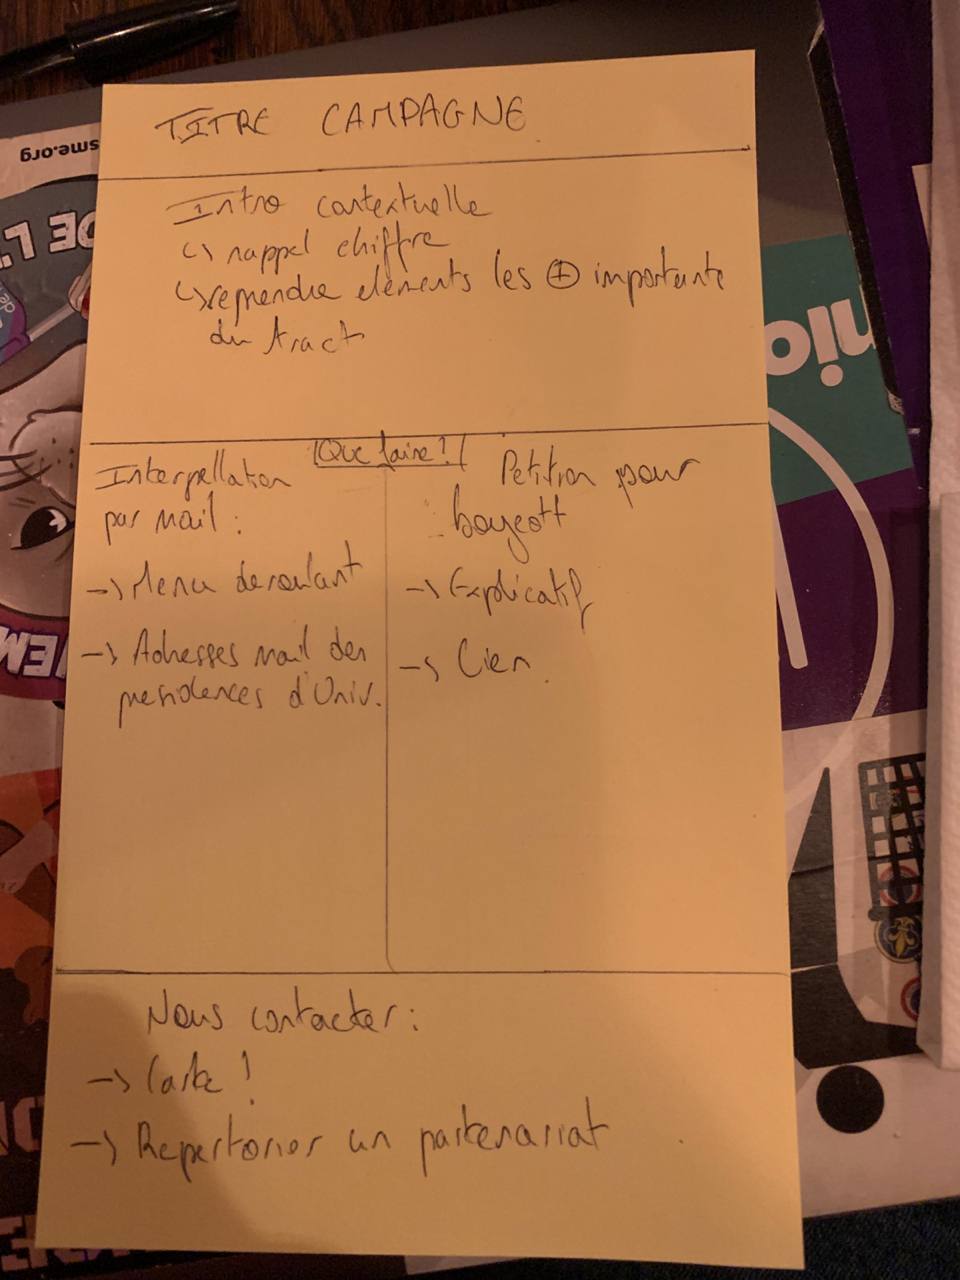 TITRE CAMPAGNE
Intro contextuelle
↳ rappel chiffre
↳ reprendre elements les ⊕ importante
du tract
Que faire?
Interpellation
par mail :
→ Menu deroulant
→ Adresses mail des
presidences d'Univ.
Petition pour
boycott
→ Explicatif
→ Lien
Nous contacter :
→ Carte !
→ Repertorier un partenariat
sme.org
DE L'
nio